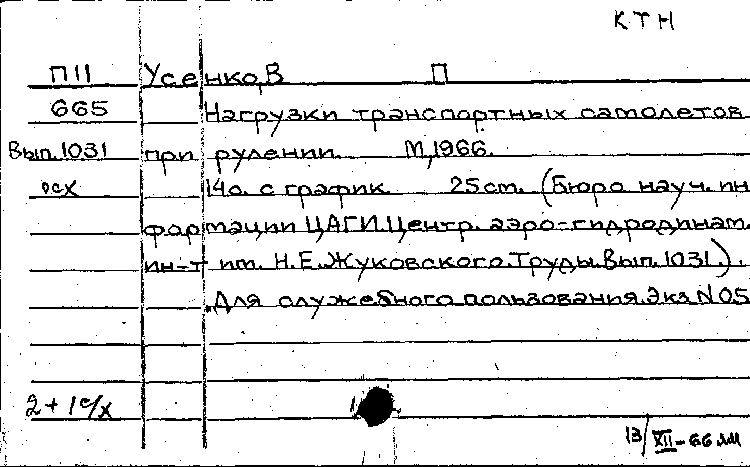 КТН
П11 Усенко, В П
665 Нагрузки транспортных самолетов
Вып. 1031 при рулении. М, 1966.
осх 14с. с график 25 cm. (Бюро науч. ин
формации ЦАГИ. Центр. аэро-гидродинат.
ин-т им. Н. Е. Жуковского. Труды. Вып. 1031.).
Для служебного пользования. Экз N 05
2 + 1 с/х
13/XII-66